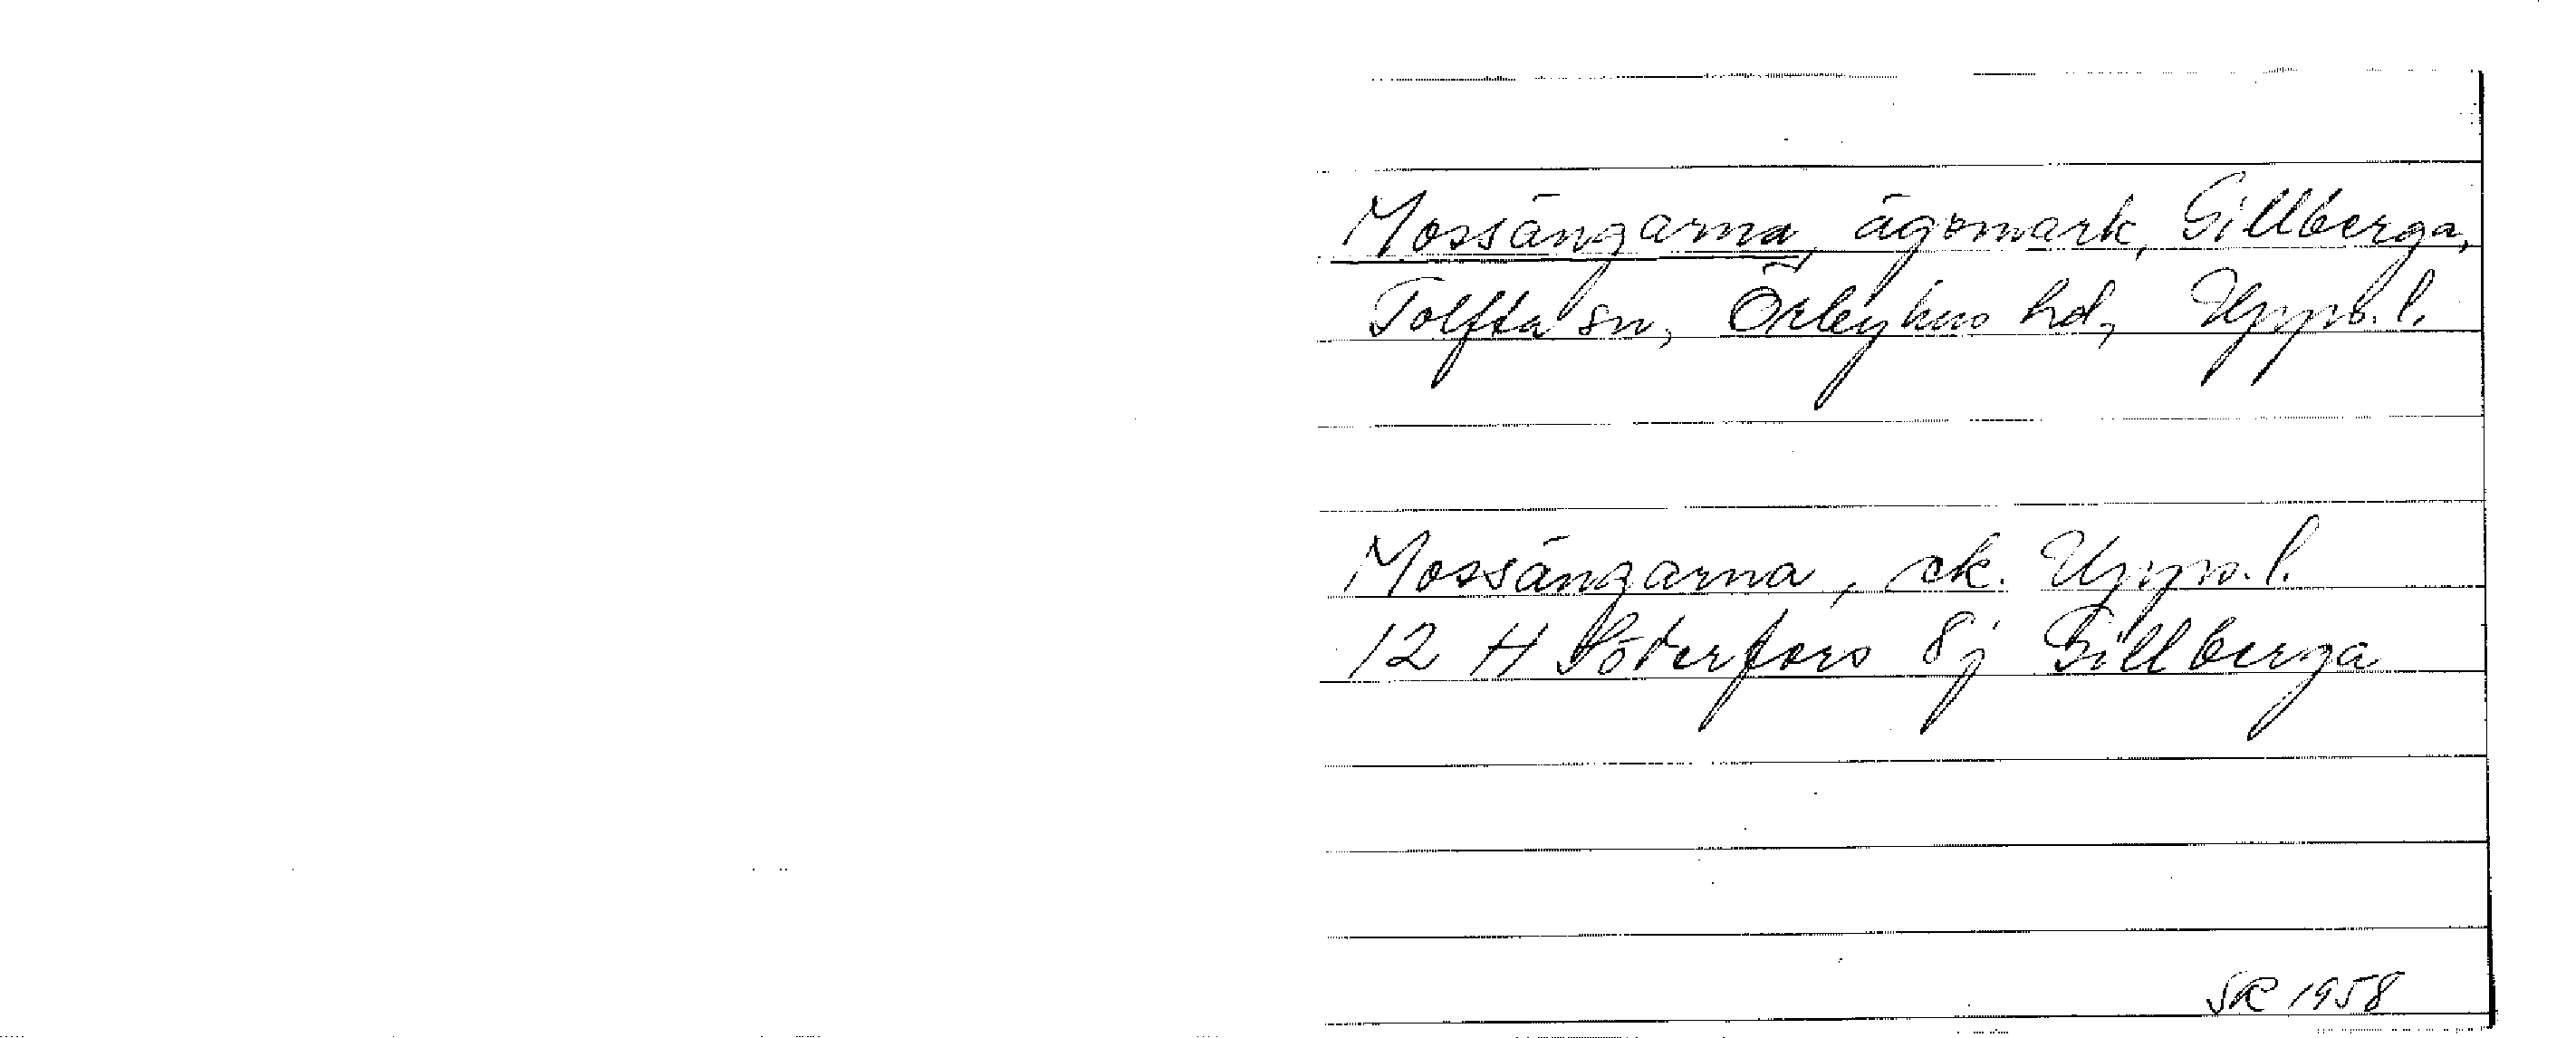 Mossängarna, ägomark, Gillberga,
Tolfta sn, Örbyhus hd, Upps. l.
Mossängarna, ek. Upps. l.
12 H Söderfors 8j Gillberga
SR 1958